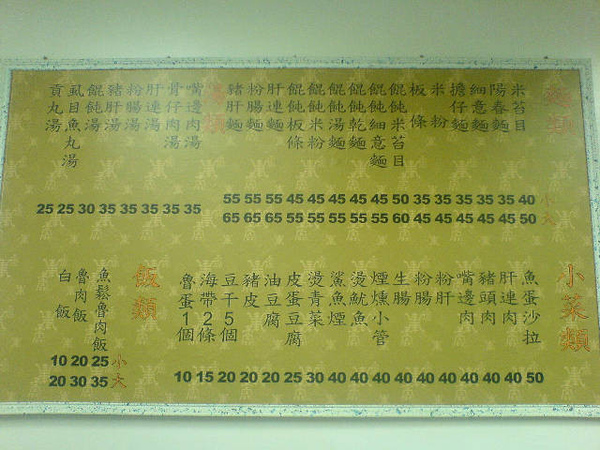 麵類
米苔目
陽春麵
細意麵
擔仔麵
米粉
板條
餛飩米苔目
餛飩細意麵
餛飩乾麵
餛飩湯麵
餛飩米粉
餛飩板條
肝連麵
粉腸麵
豬肝麵
55 55 55 45 45 45 45 45 50 35 35 35 35 35 40 小
65 65 65 55 55 55 55 55 60 45 45 45 45 45 50 大
湯類
嘴邊肉湯
骨仔肉湯
肝連湯
粉腸湯
豬肝湯
餛飩湯
虱目魚丸湯
貢丸湯
25 25 30 35 35 35 35 35
小菜類
魚蛋沙拉
肝連肉
豬頭肉
嘴邊肉
粉肝
粉腸
生腸
煙燻小管
燙魷魚
鯊魚煙
燙青菜
皮蛋豆腐
油豆腐
豬皮
豆干5個
海帶2條
魯蛋1個
10 15 20 20 20 25 30 40 40 40 40 40 40 40 40 40 50
飯類
魚鬆魯肉飯
魯肉飯
白飯
10 20 25 小
20 30 35 大